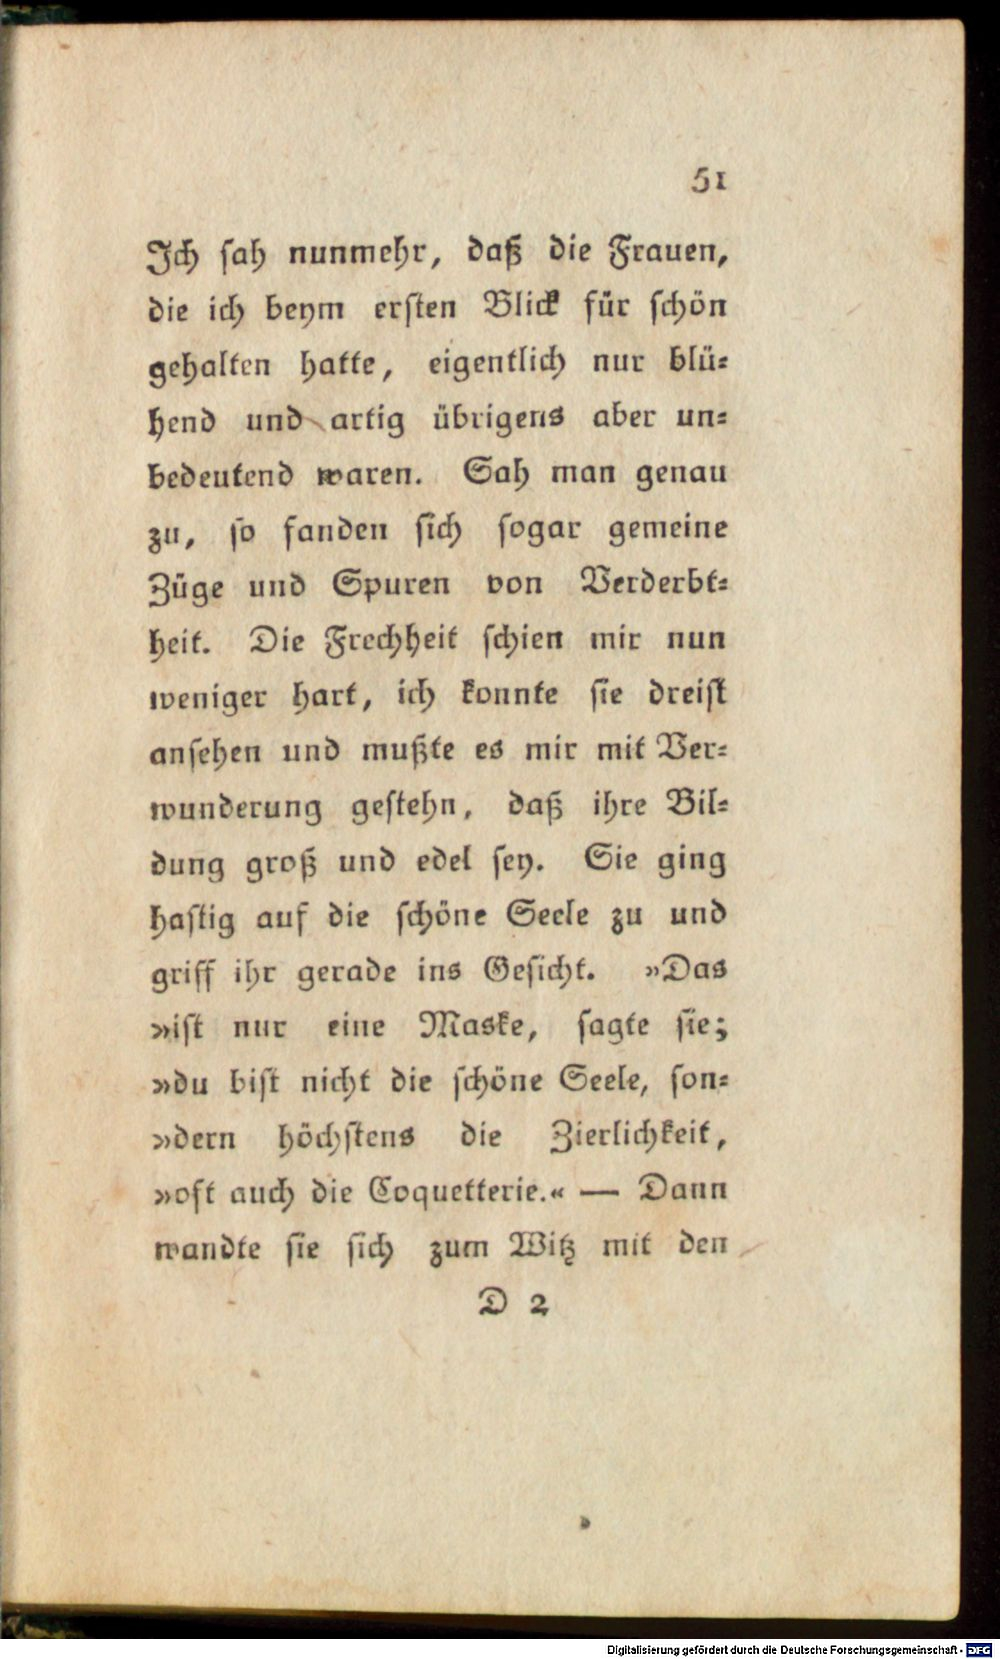 51
Ich ſah nunmehr, daß die Frauen,
die ich beym erſten Blick für ſchön
gehalten hatte, eigentlich nur blü-
hend und artig übrigens aber un-
bedeutend waren. Sah man genau
zu, ſo fanden ſich ſogar gemeine
Züge und Spuren von Verderbt-
heit. Die Frechheit ſchien mir nun
weniger hart, ich konnte ſie dreiſt
anſehen und mußte es mir mit Ver-
wunderung geſtehn, daß ihre Bil-
dung groß und edel ſey. Sie ging
haſtig auf die ſchöne Seele zu und
griff ihr gerade ins Geſicht. »Das
»iſt nur eine Maske, ſagte ſie;
»du biſt nicht die ſchöne Seele, ſon-
»dern höchſtens die Zierlichkeit,
»oft auch die Coquetterie.« — Dann
wandte ſie ſich zum Witz mit den
D 2
Digitalisierung gefördert durch die Deutsche Forschungsgemeinschaft - DFG